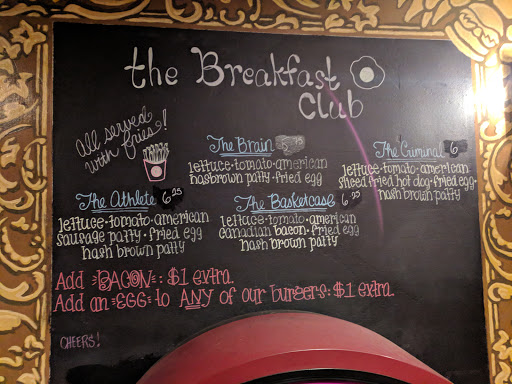 the Breakfast
Club
All served
with fries!
The Brain
lettuce·tomato·american
hasbrown patty·fried egg
The Criminal 6
lettuce·tomato·american
sliced fried hot dog·fried egg
hash brown patty
The Athlete 6.25
lettuce·tomato·american
sausage patty·fried egg
hash brown patty
The Basketcase 6.25
lettuce·tomato·american
canadian bacon·fried egg
hash brown patty
Add BACON: $1 extra.
Add an EGG to ANY of our burgers: $1 extra.
CHEERS!